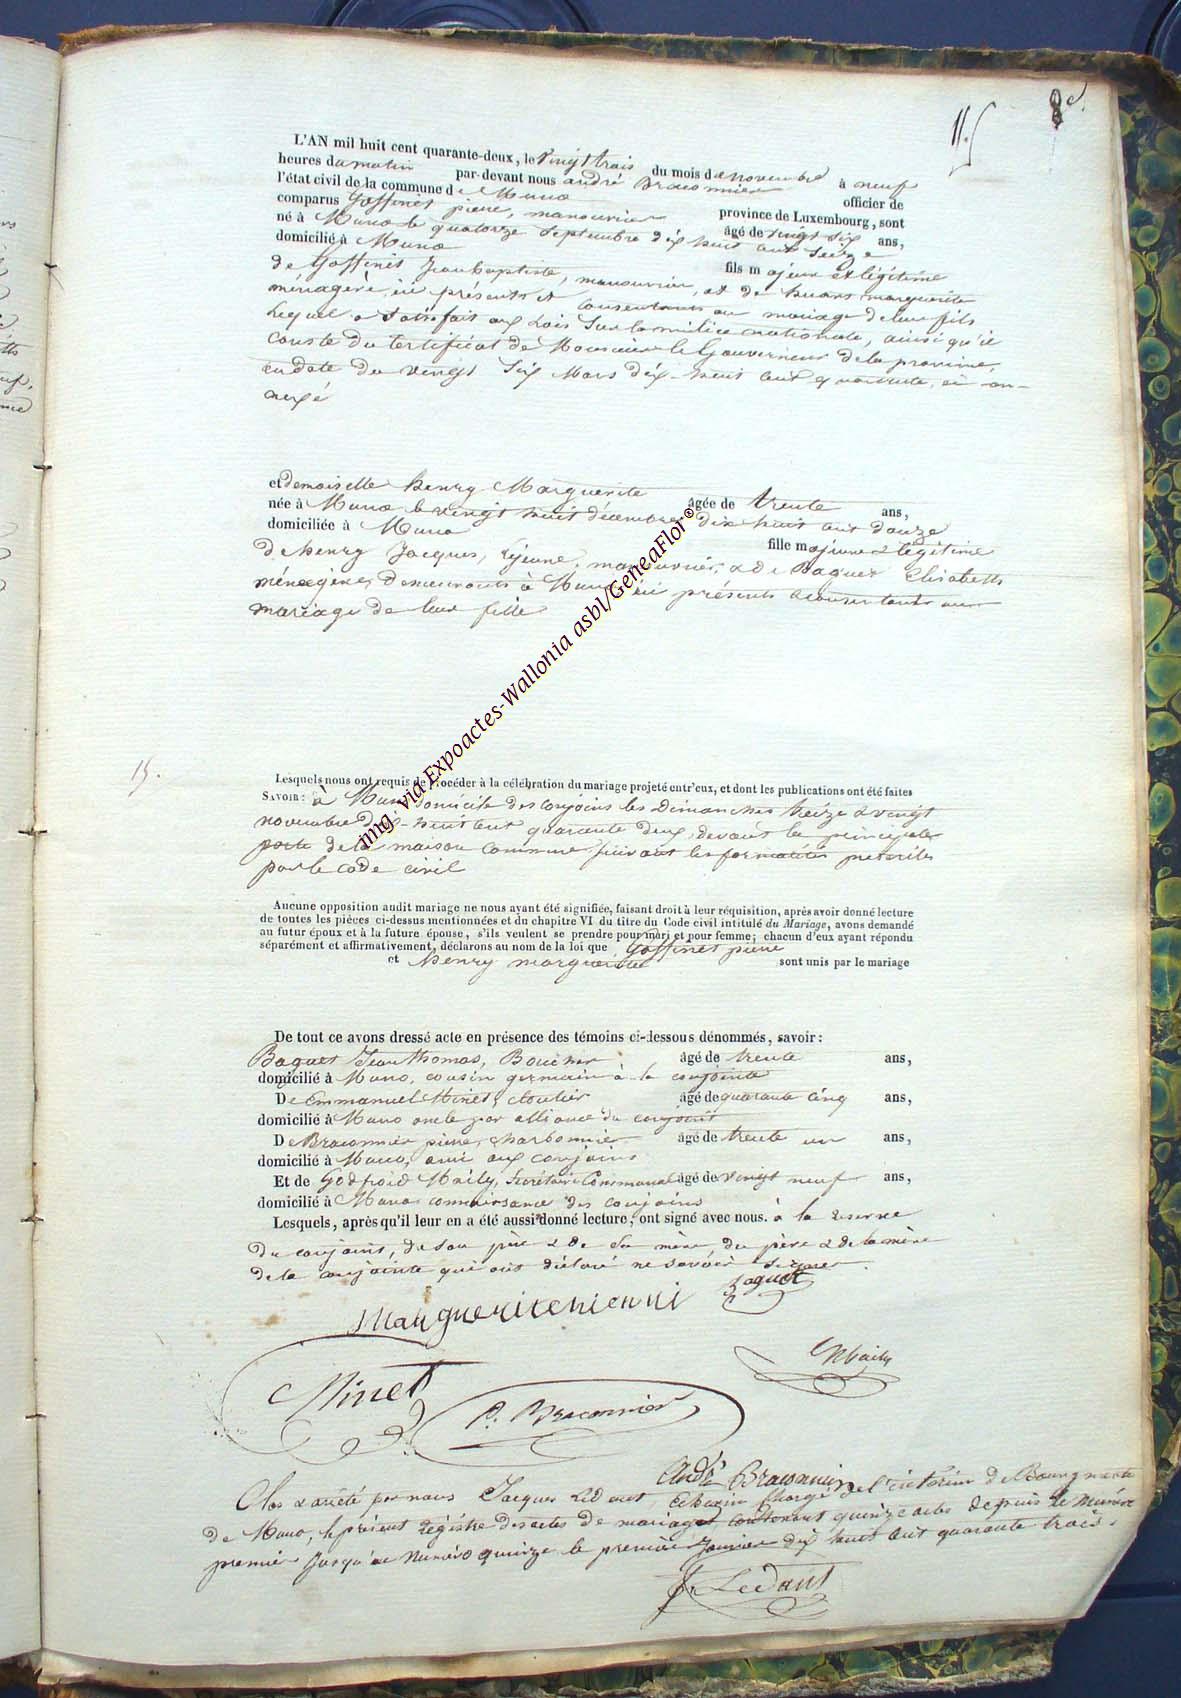 8e.
L'AN mil huit cent quarante-deux, le vingt trois du mois de novembre à neuf
heures du matin par-devant nous andré Braconnier officier de
l'état civil de la commune de Muno province de Luxembourg, sont
comparus Goffinet pierre, manouvrier âgé de vingt six ans,
né à Muno le quatorze septembre dix huit cent seize
domicilié à Muno fils majeur et légitime
de Goffinet Jean baptiste, manouvrier, et de huart marguerite
ménagère, ici présents et consentants au mariage de leur fils
Lequel a satisfait aux Lois Sur la milice nationale, ainsi qu'il
conste du Certificat de Monsieur le Gouverneur de la province,
en date du vingt Six Mars dix-huit cent quarante, ci an-
nexé
et demoiselle henry Marguerite âgée de trente ans,
née à Muno le vingt huit décembre dix huit cent douze
domiciliée à Muno fille majeure & légitime
de henry Jacques, Lejeune, manouvrier, & de Baguet Elisabeth
ménagère, demeurants à Muno ici présents & consentants au
mariage de leur fille
15.
Lesquels nous ont requis de procéder à la célébration du mariage projeté entr'eux, et dont les publications ont été faites
SAVOIR: à Muno domicile des conjoins les Dimanches treize & vingt
novembre dix-huit cent quarante deux, devant la principale
porte de la maison Commune suivant les formalités prescrites
par le code civil
Aucune opposition audit mariage ne nous ayant été signifiée, faisant droit à leur réquisition, après avoir donné lecture
de toutes les pièces ci-dessus mentionnées et du chapitre VI du titre du Code civil intitulé du Mariage, avons demandé
au futur époux et à la future épouse, s'ils veulent se prendre pour mari et pour femme; chacun d'eux ayant répondu
séparément et affirmativement, déclarons au nom de la loi que Goffinet pierre
et henry marguerite sont unis par le mariage
De tout ce avons dressé acte en présence des témoins ci-dessous dénommés, savoir:
Baguet Jean thomas, âgé de trente ans,
domicilié à Muno, cousin germain à la conjointe
De Emmanuel Minet, cloutier âgé de quarante cinq ans,
domicilié à Muno oncle par alliance du conjoint
De Braconnier pierre, charbonnier âgé de trente un ans,
domicilié à Muno, ami aux conjoins
Et de Godfroid Maily, Secrétaire Communal âgé de vingt neuf ans,
domicilié à Muno connaissance des conjoins
Lesquels, après qu'il leur en a été aussi donné lecture, ont signé avec nous. à la reserve
du conjoint, de son père & de sa mère, du père & de la mère
de la conjointe qui ont déclaré ne savoir signer.
Baguet
Margueritehenri
Maily
Minet
P. Braconnier
André Braconnier
Clos & arrêté par nous Jacques Ledant, Echevin chargé de l'intérim de Bourgmestre
de Muno, le présent Régistre des actes de mariages, contenant quinze actes depuis le Numéro
premier Jusqu'au Numéro quinze le premier Janvier dix huit cent quarante trois.
J. Ledant
img. via Expoactes-Wallonia asbl/GeneaFlor©